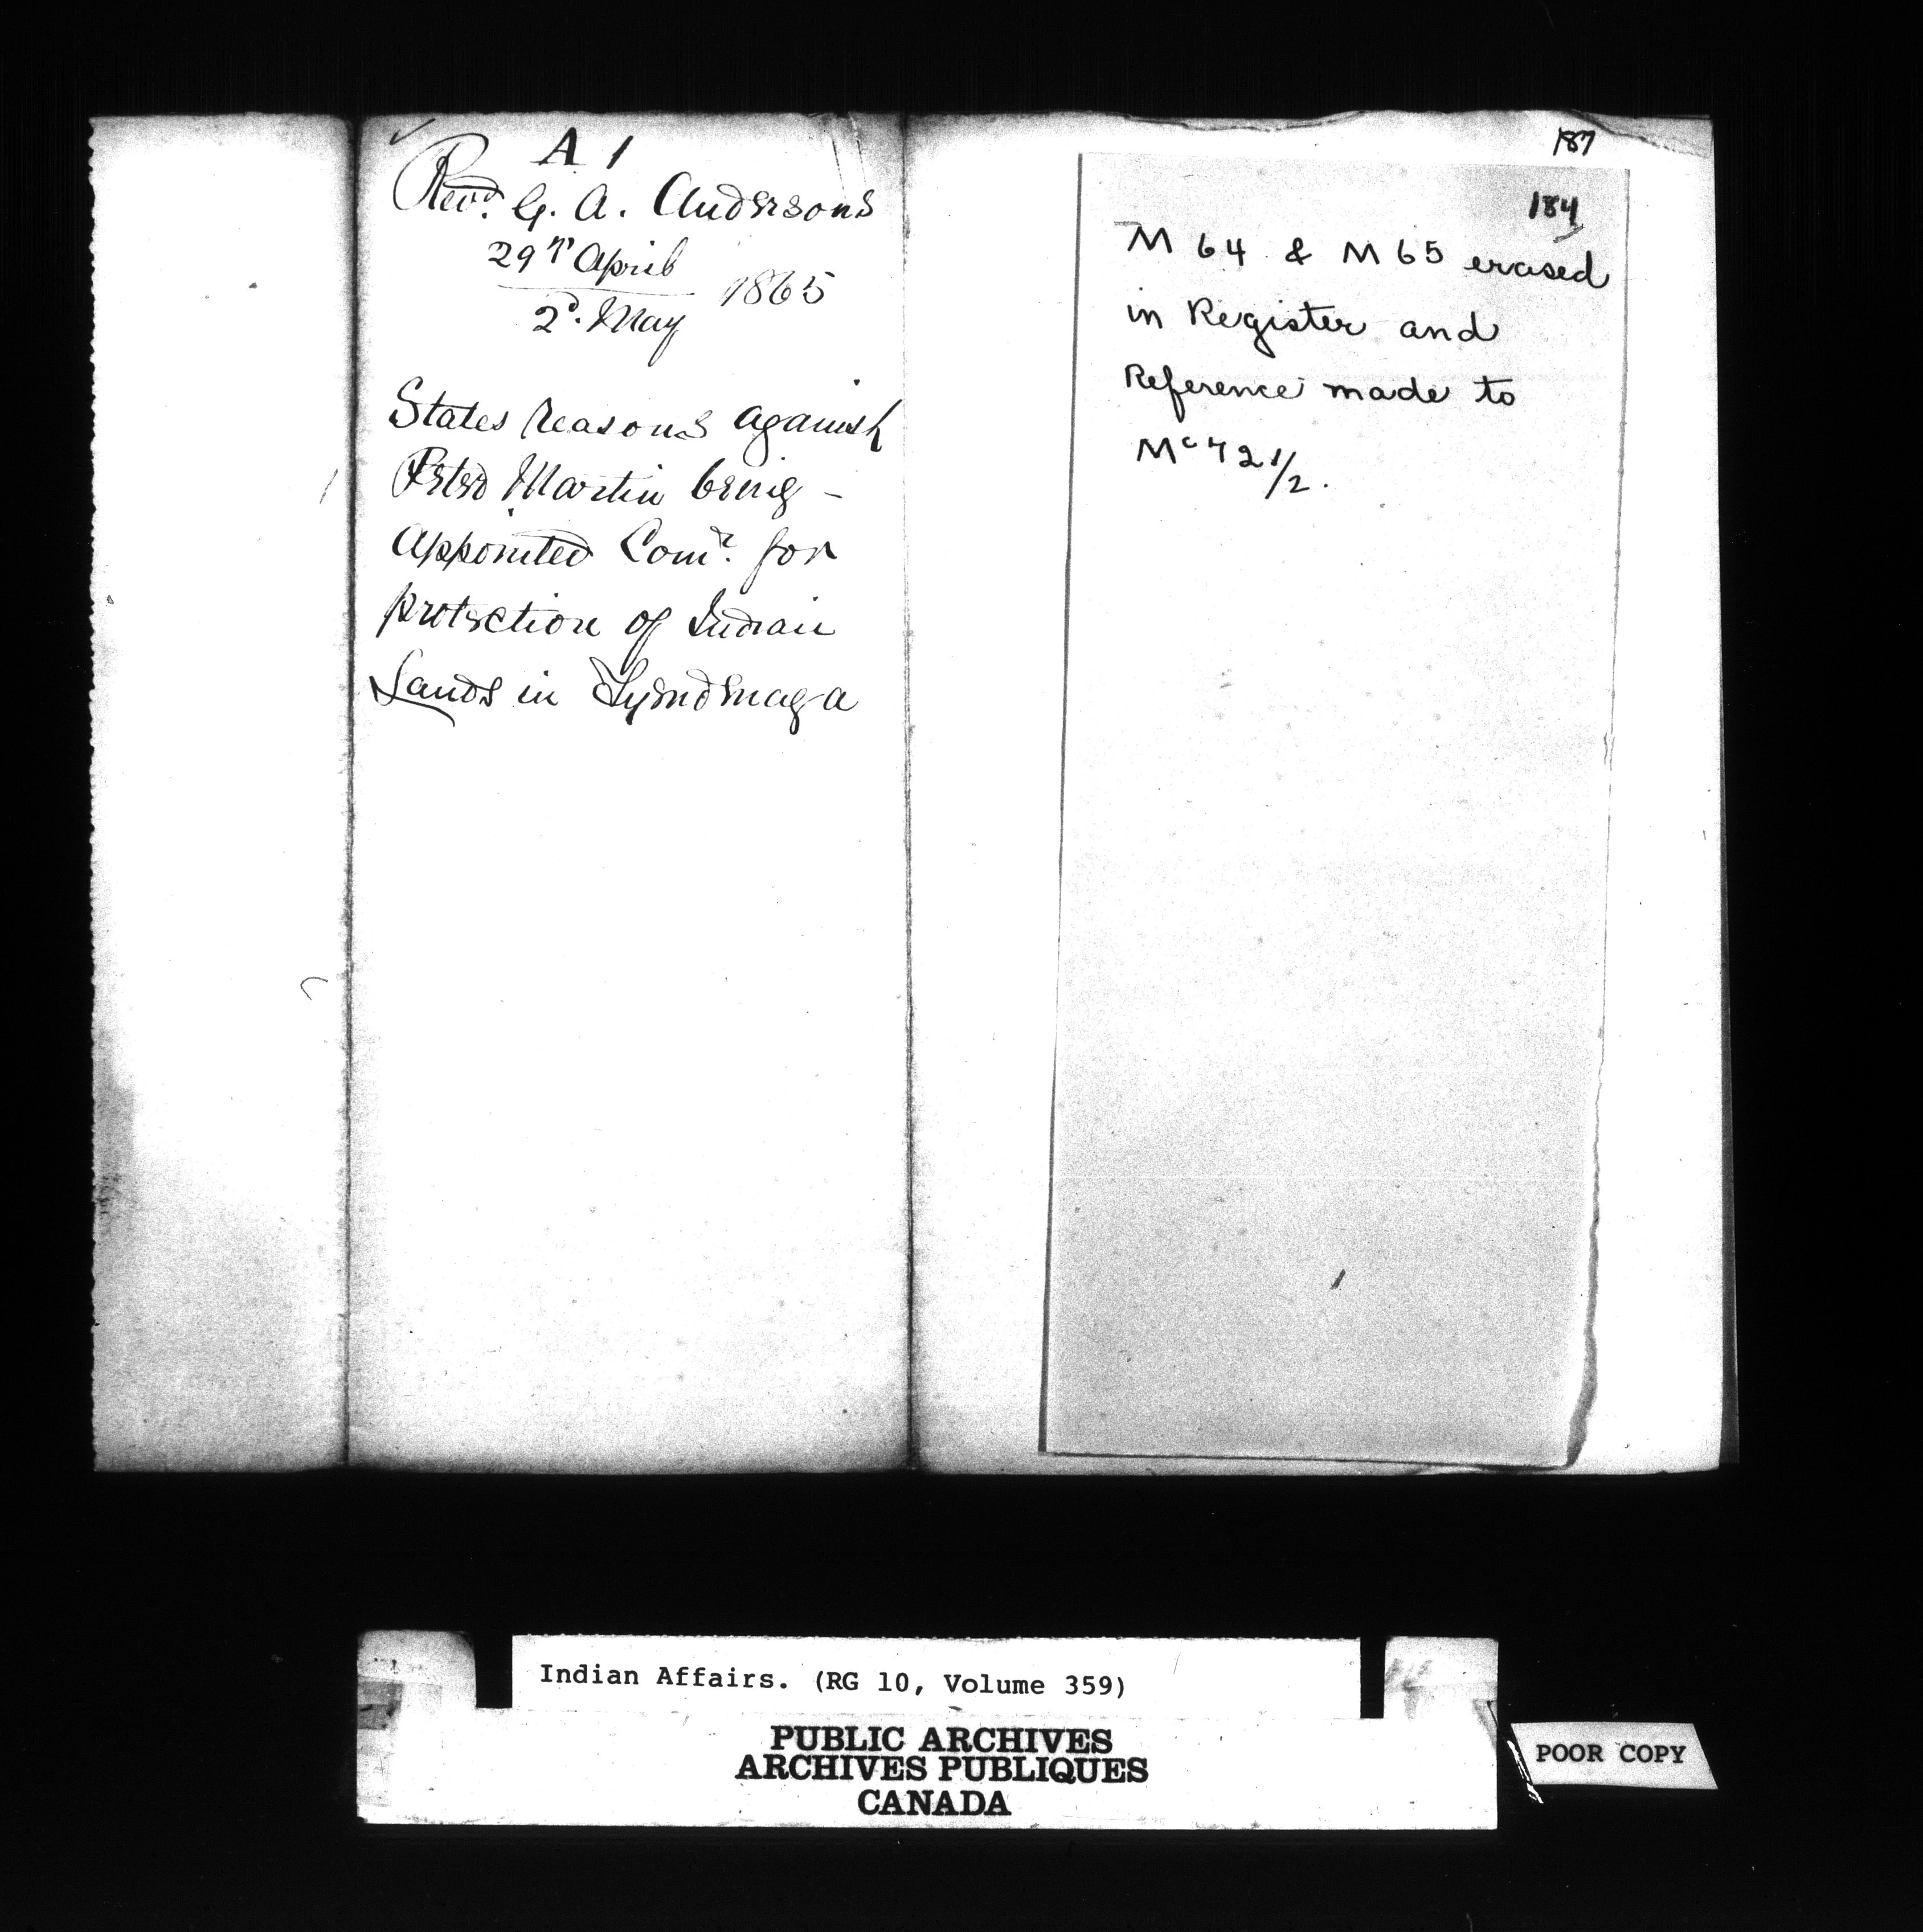 A 1
Revd. G. A. Andersons
29th April
1865
2d. May
States reasons against
Peter Martin being -
Appointed Comr. for
protection of Indian
Lands in Tyendinaga
187
184
M 64 & M 65 erased
in Register and
Reference made to
Mc 42 1/2.
Indian Affairs. (RG 10, Volume 359)
PUBLIC ARCHIVES
ARCHIVES PUBLIQUES
CANADA
POOR COPY